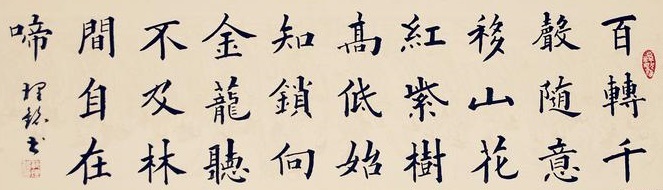 百轉千
聲隨意
移山花
紅紫樹
髙低始
知鎖向
金蘢聽
不及林
間自在
啼
书